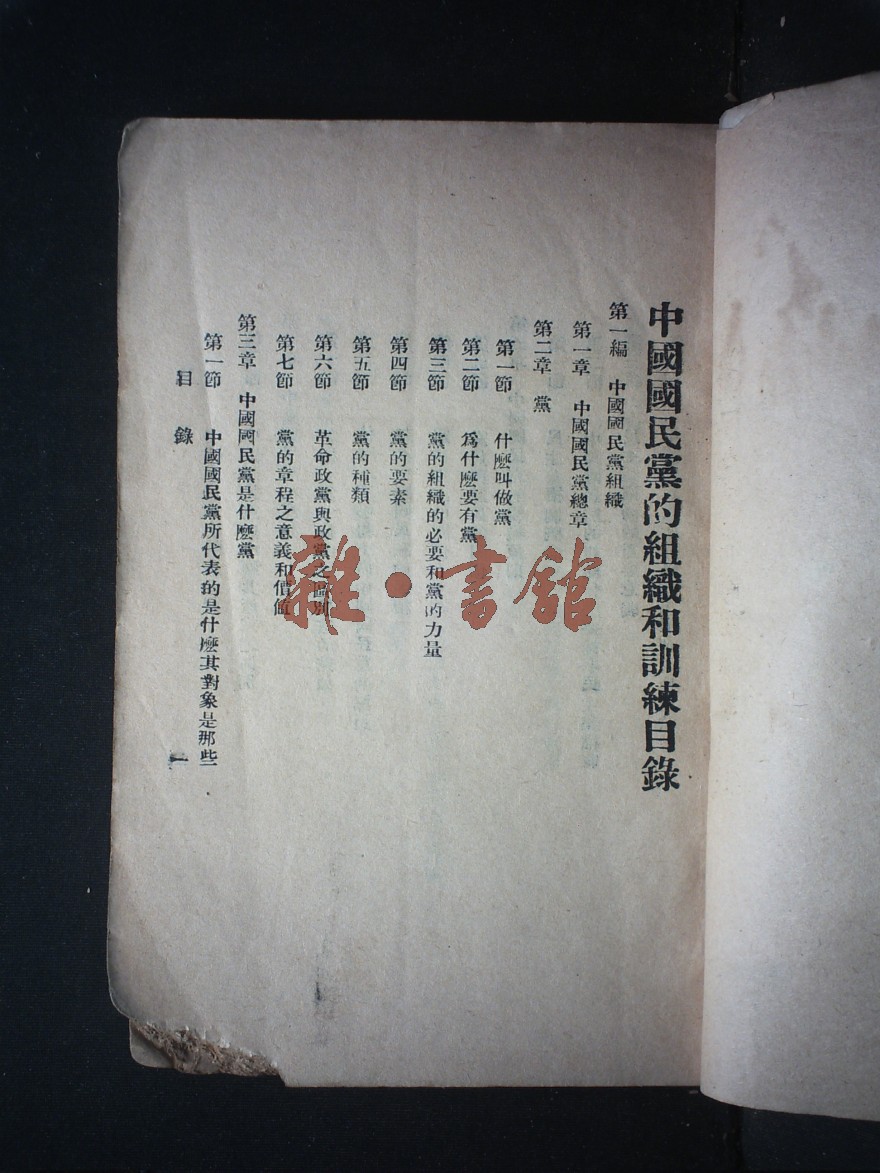 中國國民黨的組織和訓練目錄
第一編 中國國民黨組織
第一章 中國國民黨總章
第二章 黨
第一節 什麽叫做黨
第二節 爲什麽要有黨
第三節 黨的組織的必要和黨的力量
第四節 黨的要素
第五節 黨的種類
第六節 革命政黨與政黨之區別
第七節 黨的章程之意義和價值
第三章 中國國民黨是什麽黨
第一節 中國國民黨所代表的是什麽其對象是那些
目錄 一
雜·書館